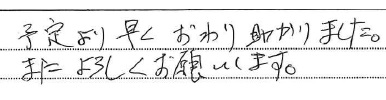 予定より早くおわり助かりました。
またよろしくお願いします。